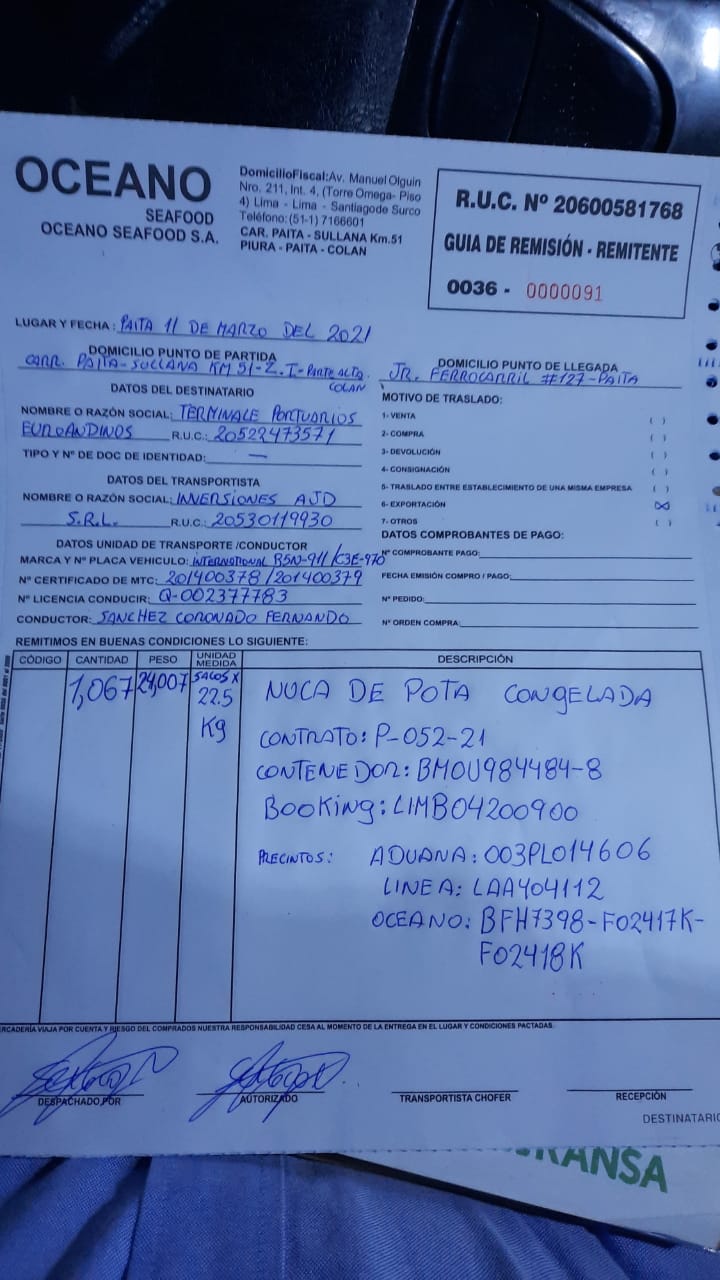 OCEANO
SEAFOOD
OCEANO SEAFOOD S.A.
DomicilioFiscal:Av. Manuel Olguin
Nro. 211, Int. 4, (Torre Omega- Piso
4) Lima - Lima - Santiagode Surco
Teléfono:(51-1) 7166601
CAR. PAITA - SULLANA Km.51
PIURA - PAITA - COLAN
R.U.C. Nº 20600581768
GUIA DE REMISIÓN - REMITENTE
0036 - 0000091
LUGAR Y FECHA: PAITA 11 DE MARZO DEL 2021
DOMICILIO PUNTO DE PARTIDA
CARR. PAITA-SULLANA KM 51-Z.I-PARTE ALTA
COLAN
DOMICILIO PUNTO DE LLEGADA
JR. FERROCARRIL #127-PAITA
DATOS DEL DESTINATARIO
NOMBRE O RAZÓN SOCIAL: TERMINALE PORTUARIOS
EUROANDINOS R.U.C.: 20522473571
TIPO Y Nº DE DOC DE IDENTIDAD: —
DATOS DEL TRANSPORTISTA
NOMBRE O RAZÓN SOCIAL: INVERSIONES AJD
S.R.L. R.U.C.: 20530119930
DATOS UNIDAD DE TRANSPORTE /CONDUCTOR
MARCA Y Nº PLACA VEHICULO: INTERNATIONAL B5N-911/C3E-970
Nº CERTIFICADO DE MTC: 201400378/201400379
Nº LICENCIA CONDUCIR: Q-002377783
CONDUCTOR: SANCHEZ CORONADO FERNANDO
MOTIVO DE TRASLADO:
1- VENTA ( )
2- COMPRA ( )
3- DEVOLUCIÓN ( )
4- CONSIGNACIÓN ( )
5- TRASLADO ENTRE ESTABLECIMIENTO DE UNA MISMA EMPRESA ( )
6- EXPORTACIÓN (X)
7- OTROS ( )
DATOS COMPROBANTES DE PAGO:
Nº COMPROBANTE PAGO:
FECHA EMISIÓN COMPRO / PAGO:
Nº PEDIDO:
Nº ORDEN COMPRA:
REMITIMOS EN BUENAS CONDICIONES LO SIGUIENTE:
CÓDIGO CANTIDAD PESO UNIDAD MEDIDA DESCRIPCIÓN
1,067 24,007 SACOS X 22.5 Kg NUCA DE POTA CONGELADA
CONTRATO: P-052-21
CONTENEDOR: BMOU984484-8
BOOKING: LIMB04200900
PRECINTOS: ADUANA: 003PL014606
LINEA: LAA404112
OCEANO: BFH7398-F02417K-
F02418K
MERCADERÍA VIAJA POR CUENTA Y RIESGO DEL COMPRADOS NUESTRA RESPONSABILIDAD CESA AL MOMENTO DE LA ENTREGA EN EL LUGAR Y CONDICIONES PACTADAS
DESPACHADO POR
AUTORIZADO
TRANSPORTISTA CHOFER
RECEPCIÓN
DESTINATARIO